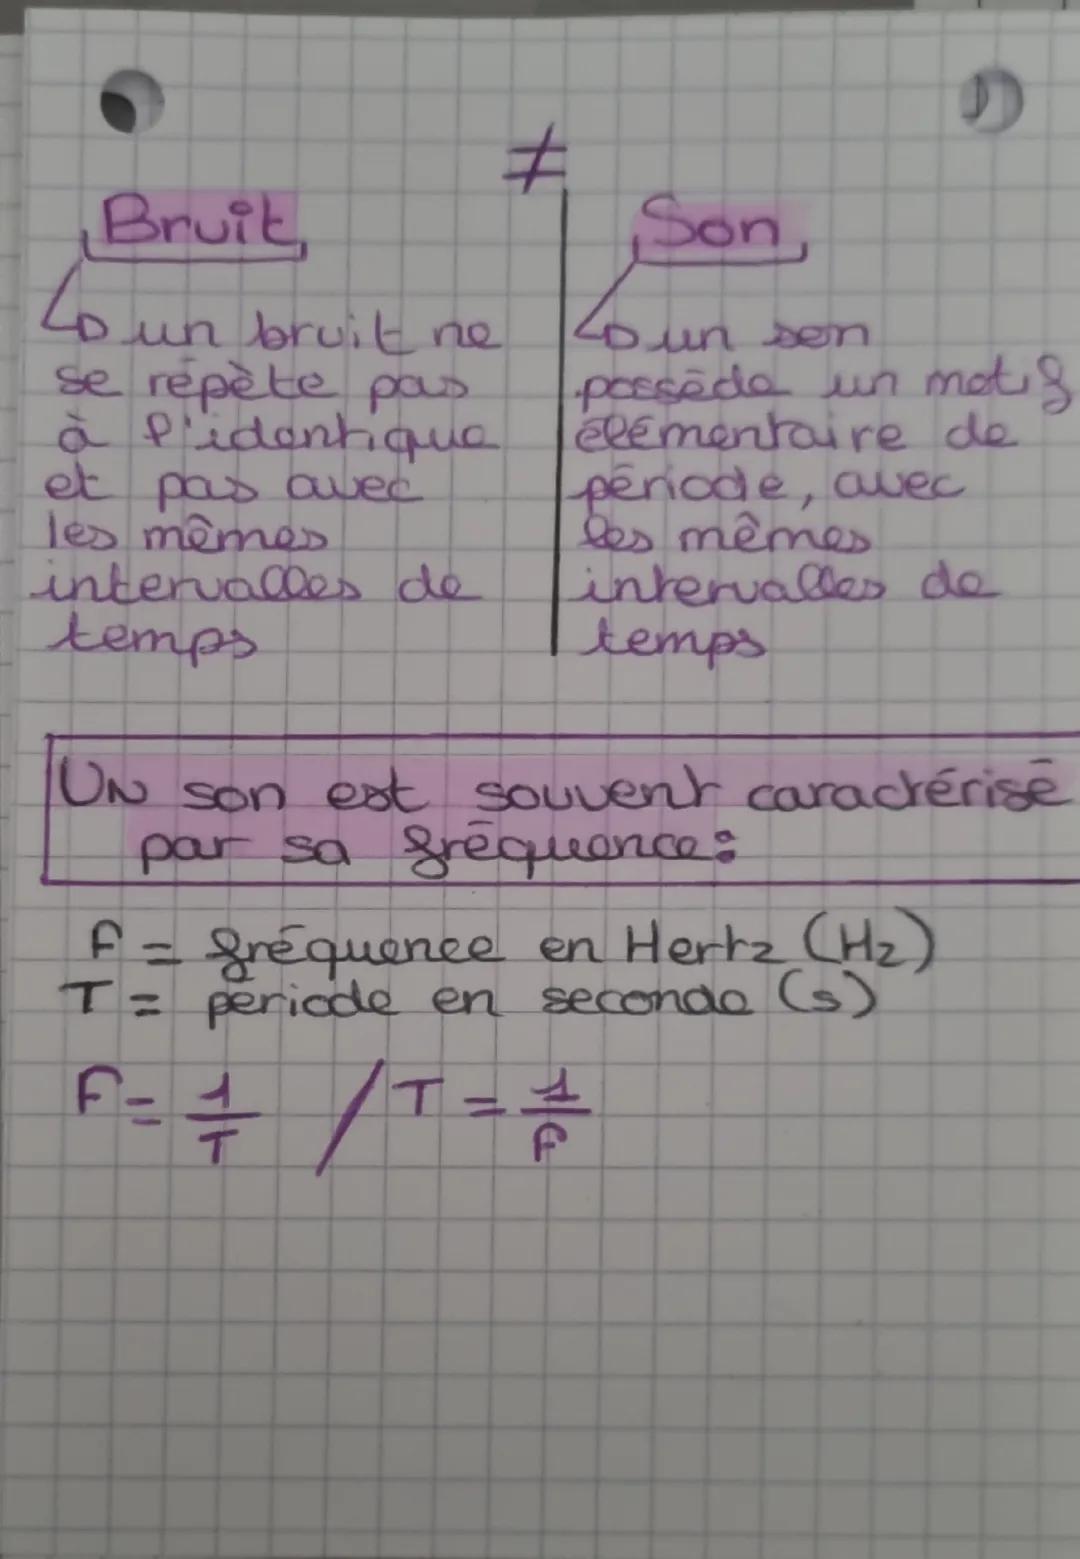 ≠
Bruit
un bruit ne
se répète pas
à l'identique
et pas avec
les mêmes
intervalles de
temps
Son
un son
possède un motif
élémentaire de
période, avec
les mêmes
intervalles de
temps
UN son est souvent caractérisé
par sa fréquence:
F = fréquence en Hertz (Hz)
T = periode en seconde (s)
F = 1/T / T = 1/F